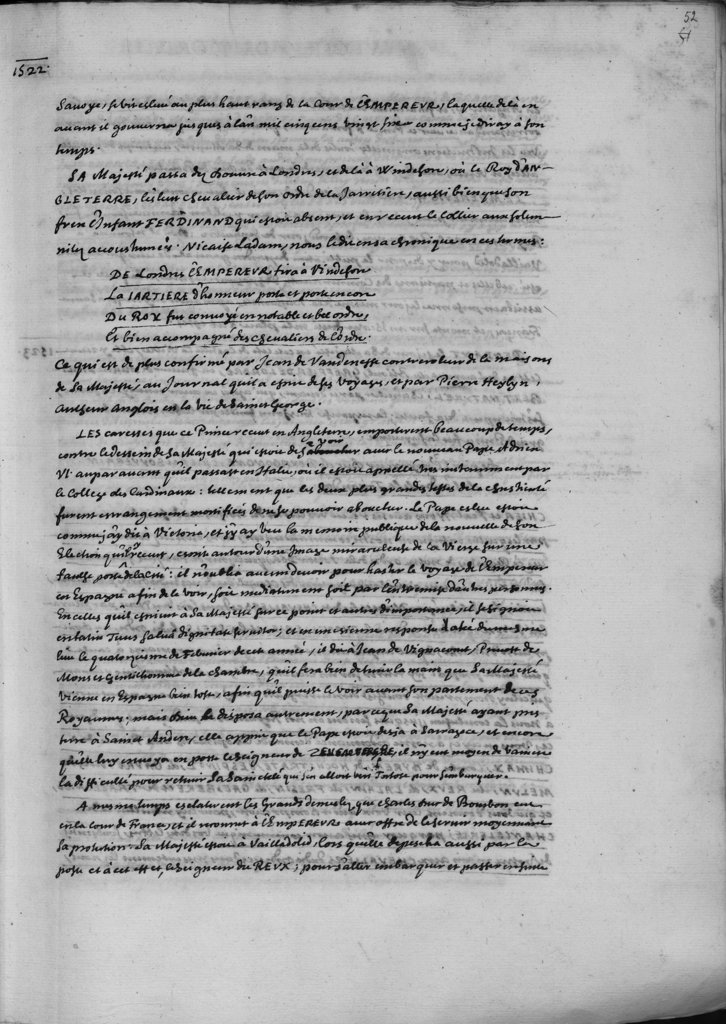 52
51
1522.
Savoye, se vit eslevé au plus haut rang de la Cour de L'EMPEREVR, laquelle de là en
avant il gouverna jusques à l'an mil cinq cens vingt comme je diray à son
temps.
SA Majesté passa de Douvre à Londres, et de là à Windesore, où le Roy D'AN-
GLETERRE, l'esleut chevalier de son ordre de la Jarretiere, aussi bien que son
frere L'Infant FERDINAND qui estoit absent, et en receut le Collier aux solem-
nitez accoustumées. Nicaise Ladam, nous le dit en sa chronique en ces termes:
DE Londres L'EMPEREVR tira à Vindesore
La IARTIERE d'honneur porta et porte encore
DU ROY fut convoyé en notable et bel ordre,
Et bien acompagné des chevaliers de L'ordre.
Ce qui est de plus confirmé par Jean de Vandenesse contreroleur de la maison
de Sa Majesté, au Journal qu'il a escrit de ses voyages, et par Pierre Heylyn,
Autheur Anglois en la vie de Sainct George.
LES caresses que ce Prince receut en Angleterre, emporterent beaucoup de temps,
contre le dessein de Sa Majesté qui estoit de s'aboucher avec le nouveau Pape Adrien
VI. auparavant qu'il passast en Italie, où il estoit appellé tres instamment par
le College des Cardinaux: tellement que les deux plus grandes testes de la chrestienté
furent estrangement mortifiées de ne se pouvoir aboucher. Le Pape esleu estoit
comme j'ay dit à Victoria, et j'y ay veu la memoire publique de la nouvelle de son
Election qu'il y receut, escrit autour d'une Image miraculeuse de la Vierge sur une
fausse porte de la cité: il n'oublia aucun devoir pour haster le voyage de L'Empereur
en Espagne afin de le voir, soit mediatement soit par l'entremise d'autres personnes.
En celles qu'il escrivit à Sa Majesté sur ce point et autres d'importance, il se signoit
en latin Tuus salva dignitate servitor; et en une sienne response datée du mesme
lieu le quatorziesme de Febvrier de cette année, il dit à Jean de Vignacourt, Prevost de
Mons et Gentilhomme de la chambre, qu'il fera bien de tenir la main que Sa Majesté
vienne en Espagne bien tost, afin qu'il puisse le voir avant son partement de ces
Royaumes; mais Dieu le disposa autrement, par ce que Sa Majesté ayant pris
terre à Sainct Ander, elle apprit que le Pape estoit desia à Sarragoce, et encore
qu'elle luy envoya en poste le Seigneur de il n'y eut moyen de vaincre
la difficulté pour retenir sa Saincteté qui s'en alloit vers Tortose pour s'embarquer.
A mesme temps esclaterent les Grands demeslez que Charles Duc de Bourbon eut
en la Cour de France, et il recourut à L'EMPEREVR avec offre de le servir moyennant
sa protection. Sa Majesté estoit à Vailladolid, lors qu'elle depescha aussi par la
poste et à cet effect, le Seigneur du REVX; pour s'aller embarquer et passer en suite